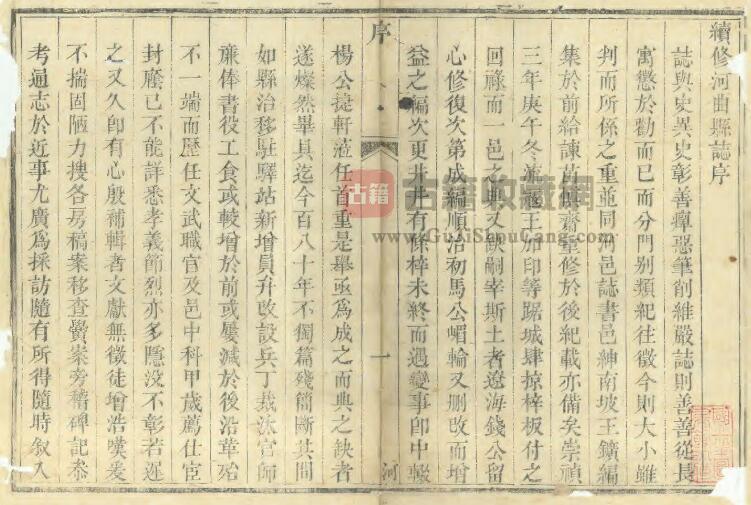 續修河曲縣誌序
誌與史異史彰善癉惡筆削維嚴誌則善善從長
寓懲於勸而已而分門別類紀往徵今則大小雖
判而所係之重並同河邑誌書邑紳南坡王鑛編
集於前給諫苗與齋重修於後紀載亦備矣崇禎
三年庚午冬流寇王加印等踞城肆掠梓板付之
回祿而一邑之典又歇嗣宰斯土者遼海錢公留
心修復次第成編順治初馬公嵋輪又刪改而增
益之編次更井井有條梓未終而遇變事卽中輟
序
一
河
楊公捷軒蒞任首重是舉亟爲成之而典之缺者
遂燦然畢具迄今百八十年不獨篇殘簡斷其間
如縣治移駐驛站新增員弁改設兵丁裁汰官師
廉俸書役工食或較增於前或屢減於後沿革殆
不一端而歷任文武職官及邑中科甲歲薦仕宦
封廕已不能詳悉孝義節烈亦多隱没不彰若遲
之又久卽有心殷補輯者文獻無徵徒增浩嘆爰
不揣固陋力搜各房稿案移查黌案旁稽碑記叅
考通志於近事尤廣爲採訪隨有所得隨時敘入
古籍
古籍收藏網
www.GuJiShouCang.com